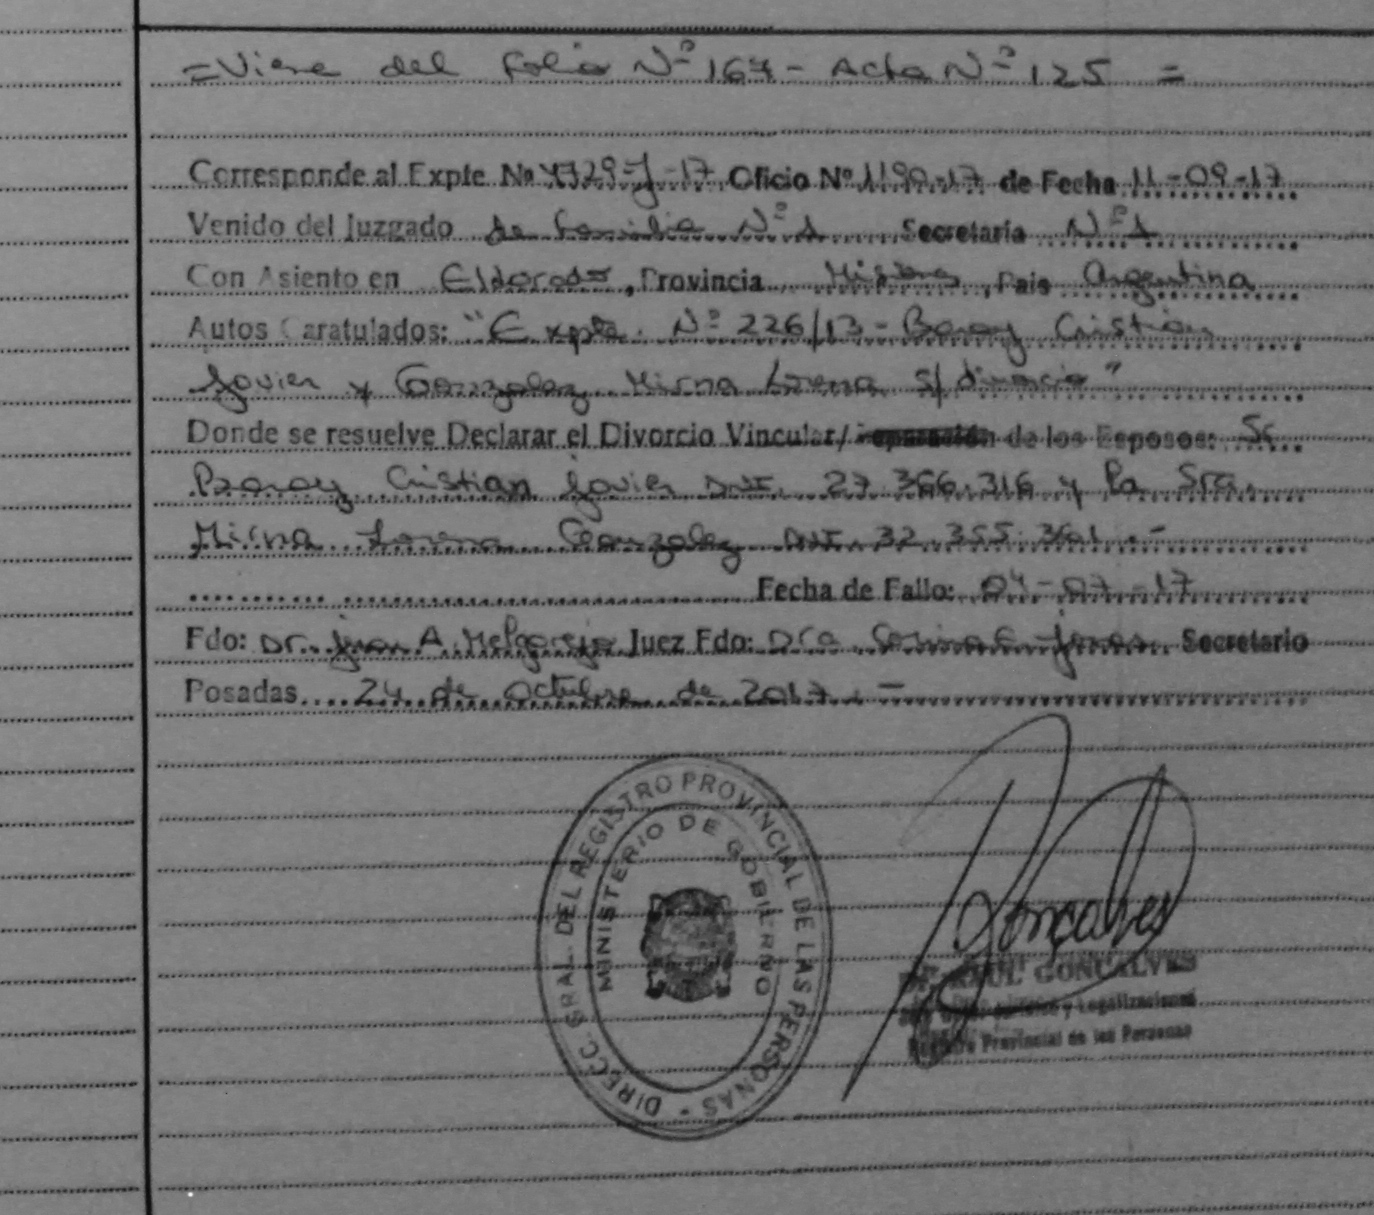 =Viene del Folio Nº 167- Acta Nº 125 =
Corresponde al Expte Nº 4329-J-17 Oficio Nº 1190-17 de Fecha 11-09-17
Venido del Juzgado de Familia Nº 1 Secretaria Nº 1
Con Asiento en Eldorado, Provincia Misiones, Pais Argentina
Autos Caratulados: "Expte. Nº 226/13- Cristian
Javier y Gonzalez Mirna Lorena S/divorcio"
Donde se resuelve Declarar el Divorcio Vincular/ de los Esposos: Sr.
Cristian Javier DNI. 27.366.316 y la Sra.
Mirna Lorena Gonzalez DNI. 32.355.361.-
Fecha de Fallo: 04-07-17
Fdo: Dr. Juan A. Melgarejo Juez Fdo: Dra Jones Secretario
Posadas 24 de Octubre de 2017.-
DIRECC. GRAL. DEL REGISTRO PROVINCIAL DE LAS PERSONAS
MINISTERIO DE GOBIERNO
Gonçalves
RAUL GONCALVES
y Legalizaciones
Registro Provincial de las Personas